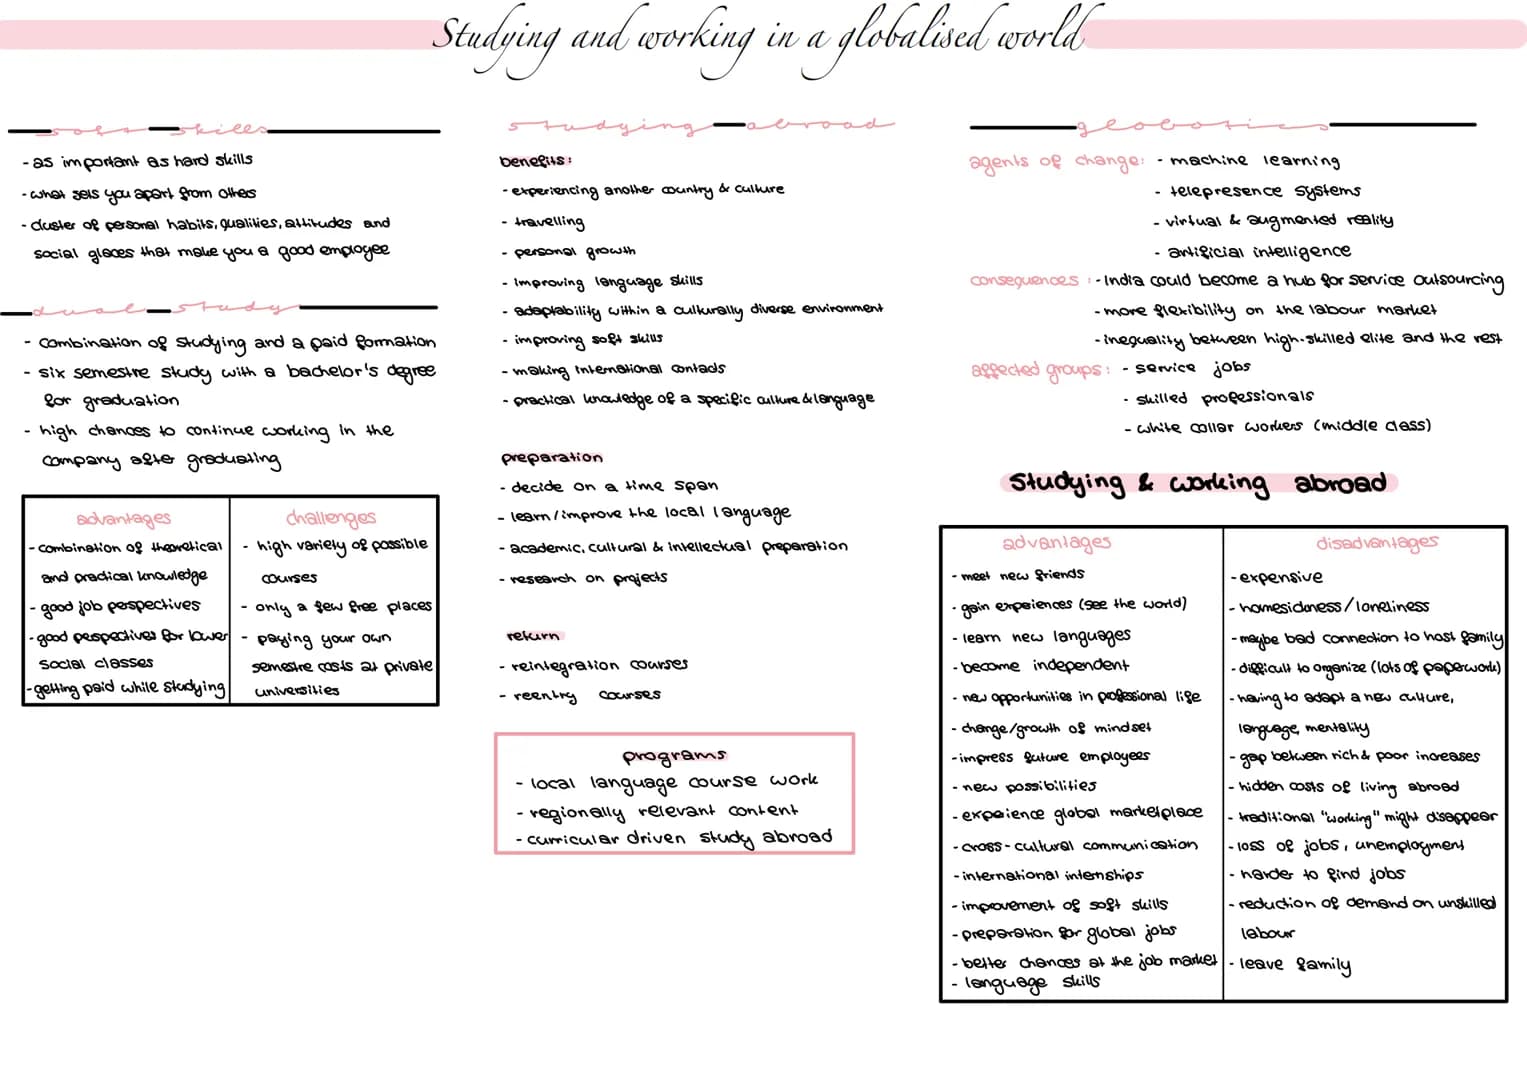 Studying and working in a globalised world
soft skills
- as important as hard skills
- what sets you apart from others
- cluster of personal habits, qualities, attitudes and
social glaces that make you a good employee
dual study
- combination of studying and a paid formation
- six semestre study with a bachelor's degree
for graduation
- high chances to continue working in the
company after graduating
advantages
- combination of theoretical
and practical knowledge
- good job perspectives
- good perspectives for lower
social classes
- getting paid while studying
challenges
- high variety of possible
courses
- only a few free places
- paying your own
semestre costs at private
universities
studying abroad
benefits:
- experiencing another country & culture
- travelling
- personal growth
- improving language skills
- adaptability within a culturally diverse environment
- improving soft skills
- making international contacts
- practical knowledge of a specific culture & language
preparation
- decide on a time span
- learn/improve the local language
- academic, cultural & intellectual preparation
- research on projects
return
- reintegration courses
- reentry courses
programs
- local language course work
- regionally relevant content
- curricular driven study abroad
globotics
agents of change: - machine learning
- telepresence systems
- virtual & augmented reality
- artificial intelligence
consequences : - India could become a hub for service outsourcing
- more flexibility on the labour market
- inequality between high-skilled elite and the rest
affected groups: - service jobs
- skilled professionals
- white collar workers (middle class)
Studying & working abroad
advantages
- meet new friends
- gain experiences (see the world)
- learn new languages
- become independent
- new opportunities in professional life
- change/growth of mindset
- impress future employees
- new possibilities
- experience global marketplace
- cross-cultural communication
- international internships
- improvement of soft skills
- preparation for global jobs
- better chances at the job market
- language skills
disadvantages
- expensive
- homesickness/loneliness
- maybe bad connection to host family
- difficult to organize (lots of paperwork)
- having to adapt a new culture,
language, mentality
- gap between rich & poor increases
- hidden costs of living abroad
- traditional "working" might disappear
- loss of jobs, unemployment
- harder to find jobs
- reduction of demand on unskilled
labour
- leave family